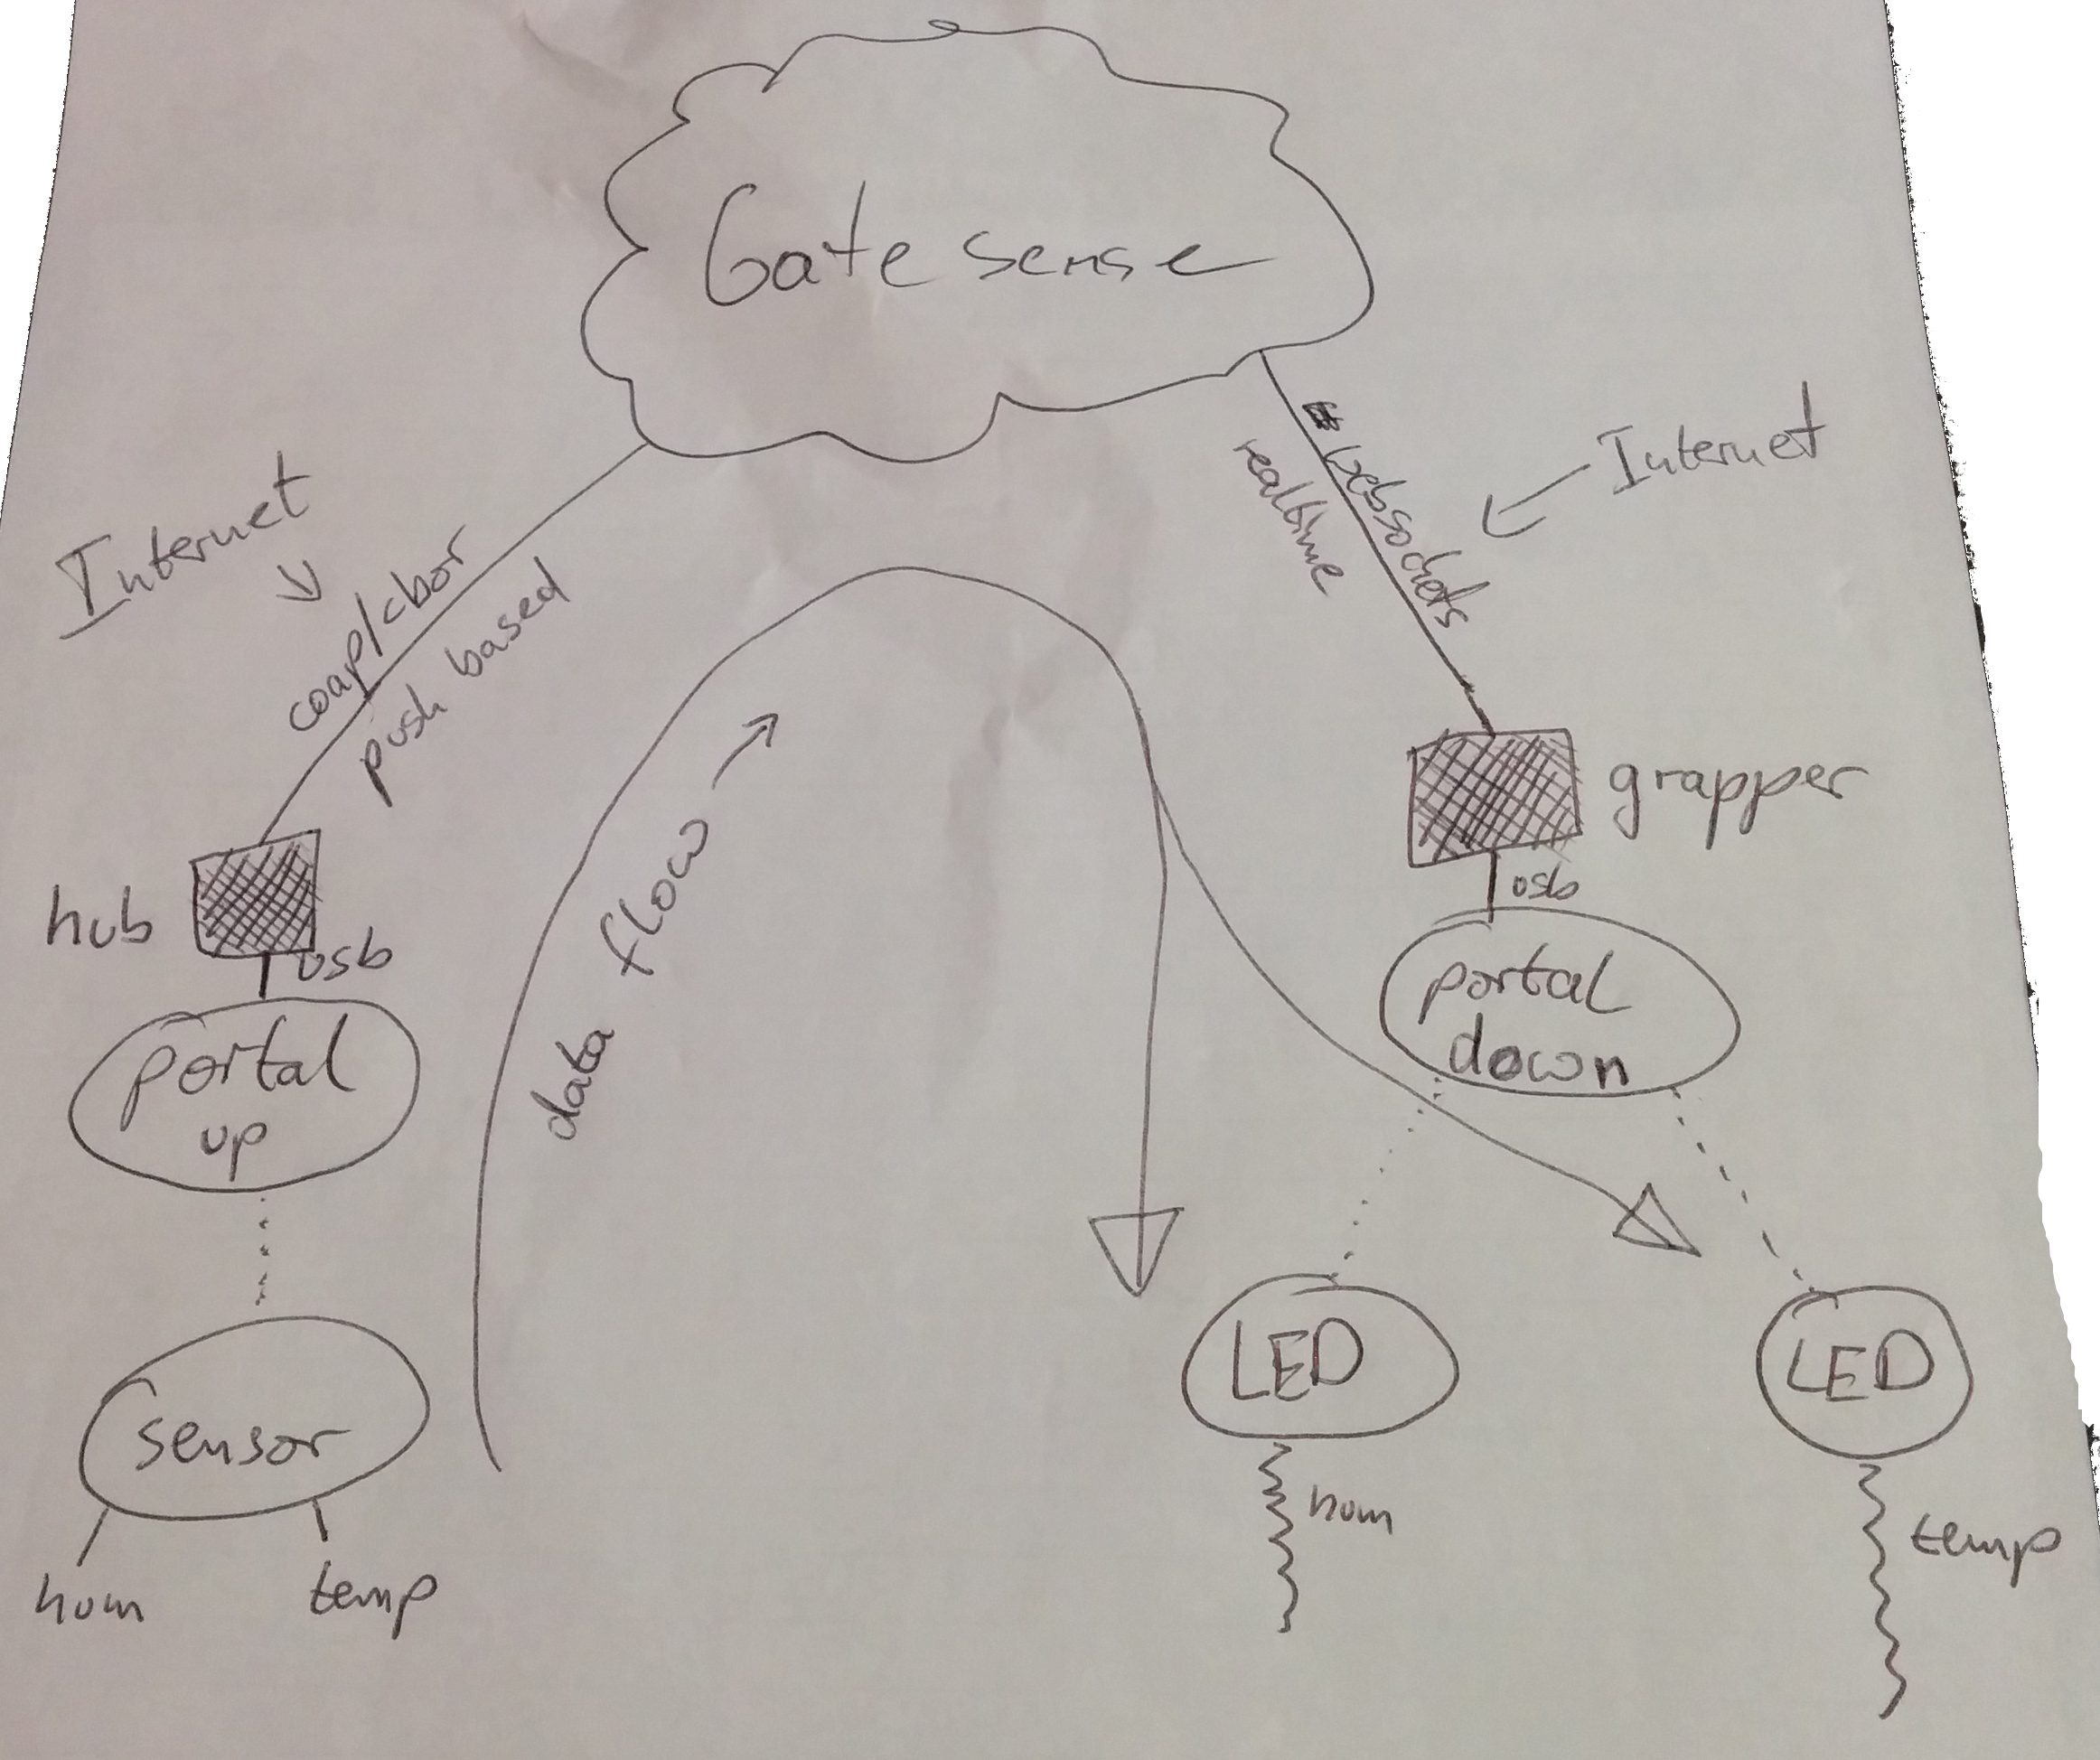 Gate sense
Internet
coap/cbor
push based
websockets
realtime
Internet
hub
usb
portal
up
sensor
hum
temp
data flow
grapper
usb
portal
down
LED
hum
LED
temp